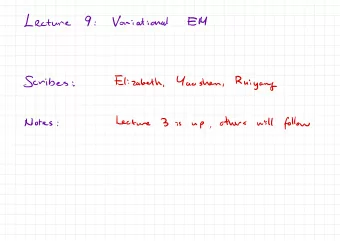 Lecture 9: Variational EM
Scribes: Elizabeth, Yaoshen, Ruiyang
Notes: Lecture 3 is up, others will follow